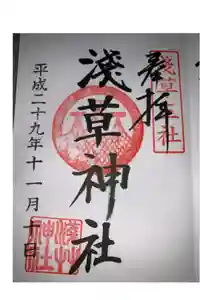 奉拝
淺草神社
平成二十九年十一月十日
淺草神社